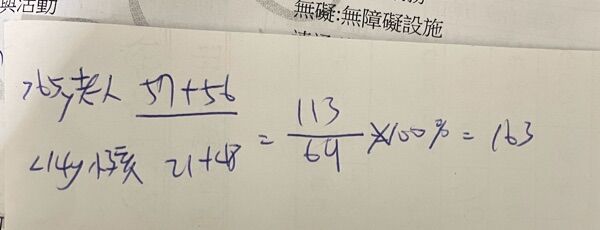 與活動
無礙:無障礙設施
>65y老人 57+56
<14y小孩 21+48
= 113/69 ×100% = 163